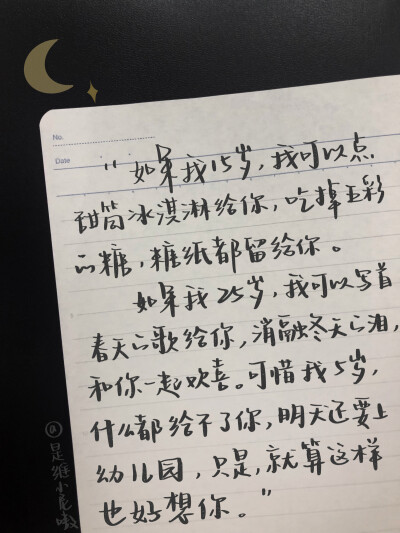 No.
Date
“如果我15岁，我可以点
甜筒冰淇淋给你，吃掉五彩
的糖，糖纸都留给你。
如果我25岁，我可以写首
春天的歌给你，消融冬天的泪，
和你一起欢喜。可惜我5岁，
什么都给不了你，明天还要上
幼儿园，只是，就算这样
也好想你。”